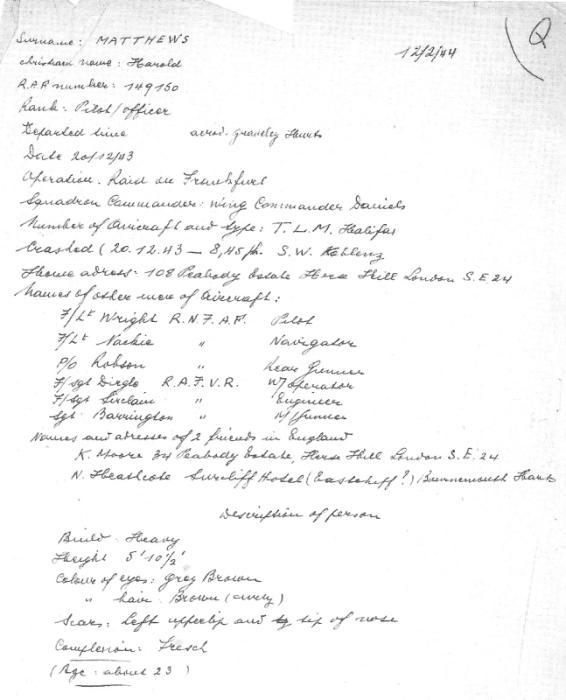 Q
12/2/44
Surname: MATTHEWS
christian name: Harold
R.A.F number: 149150
Rank: Pilot/officer
Departed time aerod. graveley Hunts
Date 20/12/43
Operation. Raid on Frankfurt
Squadron Commander: Wing Commander Daniels
Number of Aircraft and type: T. L. M. Halifax
Crashed (20.12.43 — 8,45 p. S.W. Koblenz
Home adress. 108 Peabody Estate Herne Hill London S.E 24
Names of other crew of Aircraft:
F/Lt Wright R.N.F.A.F. Pilot
F/Lt Nackie " Navigator
P/o Robson " Rear Gunner
F/sgt Dirgle R.A.F.V.R. W/operator
F/Sgt Sinclair " Engineer
Sgt Barrington " M/Gunner
Names and adresses of 2 friends in England
K. Moore 34 Peabody Estate, Herne Hill London S.E. 24
N. Heathcote Suncliff Hotel (Eastcliff?) Bournemouth Hants
Description of person
Build. Heavy
Height 5' 10½'
Colour of eyes: grey Brown
" hair. Brown (curly)
Scars: Left upperlip and tip of nose
Complexion: Fresch
(Age: about 23)